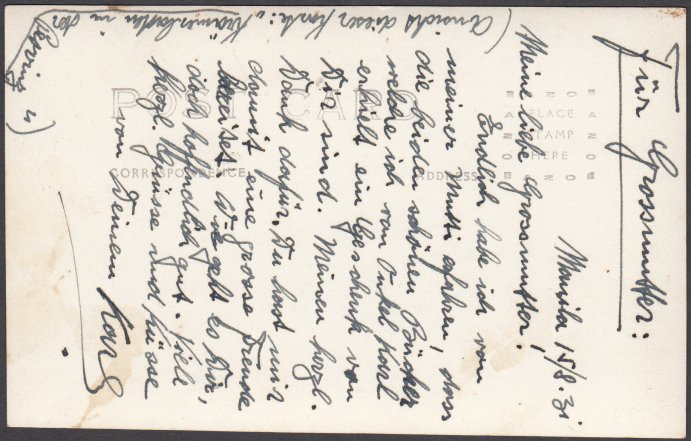 Für Grossmutter:
Manila 15/8.31
Meine liebe Grossmutter!
Endlich habe ich von
meiner Mutti erfahren, dass
die beiden schönen Bücher
welche ich von Onkel Karl
erhielt ein Geschenk von
Dir sind. Meinen herzl.
Dank dafür, Du hast mir
damit eine grosse Freude
bereitet. Wie geht es Dir,
doch hoffentlich gut. Viele
herzl. Grüsse und Küsse
von Deinem Karl
(Ansicht dieser Karte: "Krämerladen in der
POST CARD
CORRESPONDENCE
ADDRESS
PLACE
STAMP
HERE